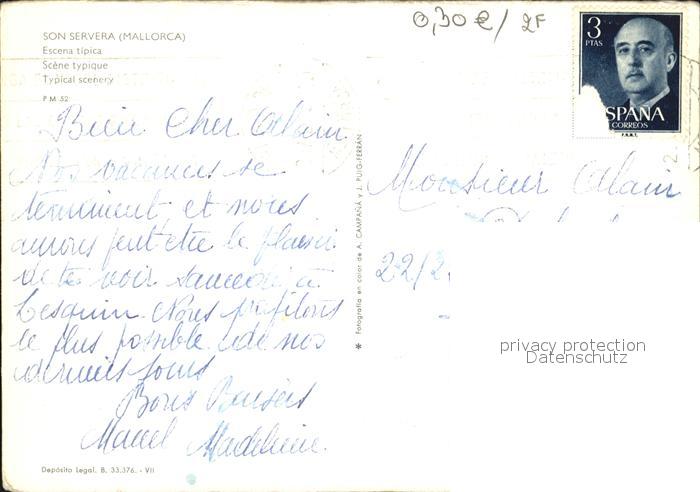 0,30€/ 2F
SON SERVERA (MALLORCA)
Escena típica
Scène typique
Typical scenery
P M 52
3
PTAS
SPAÑA
CORREOS
F.N.M.T.
Bien Cher Alain
Nos vacances se
terminent, et nous
aurons peut etre le plaisir
de te voir samedi à
Lesquin. Nous profitons
le plus possible de nos
derniers jours
Bons Baisers
Marcel Madeleine.
Monsieur Alain
22/2
* Fotografía en color de A. CAMPAÑÁ y J. PUIG-FERRÁN
privacy protection
Datenschutz
Depósito Legal. B. 33.376. - VII